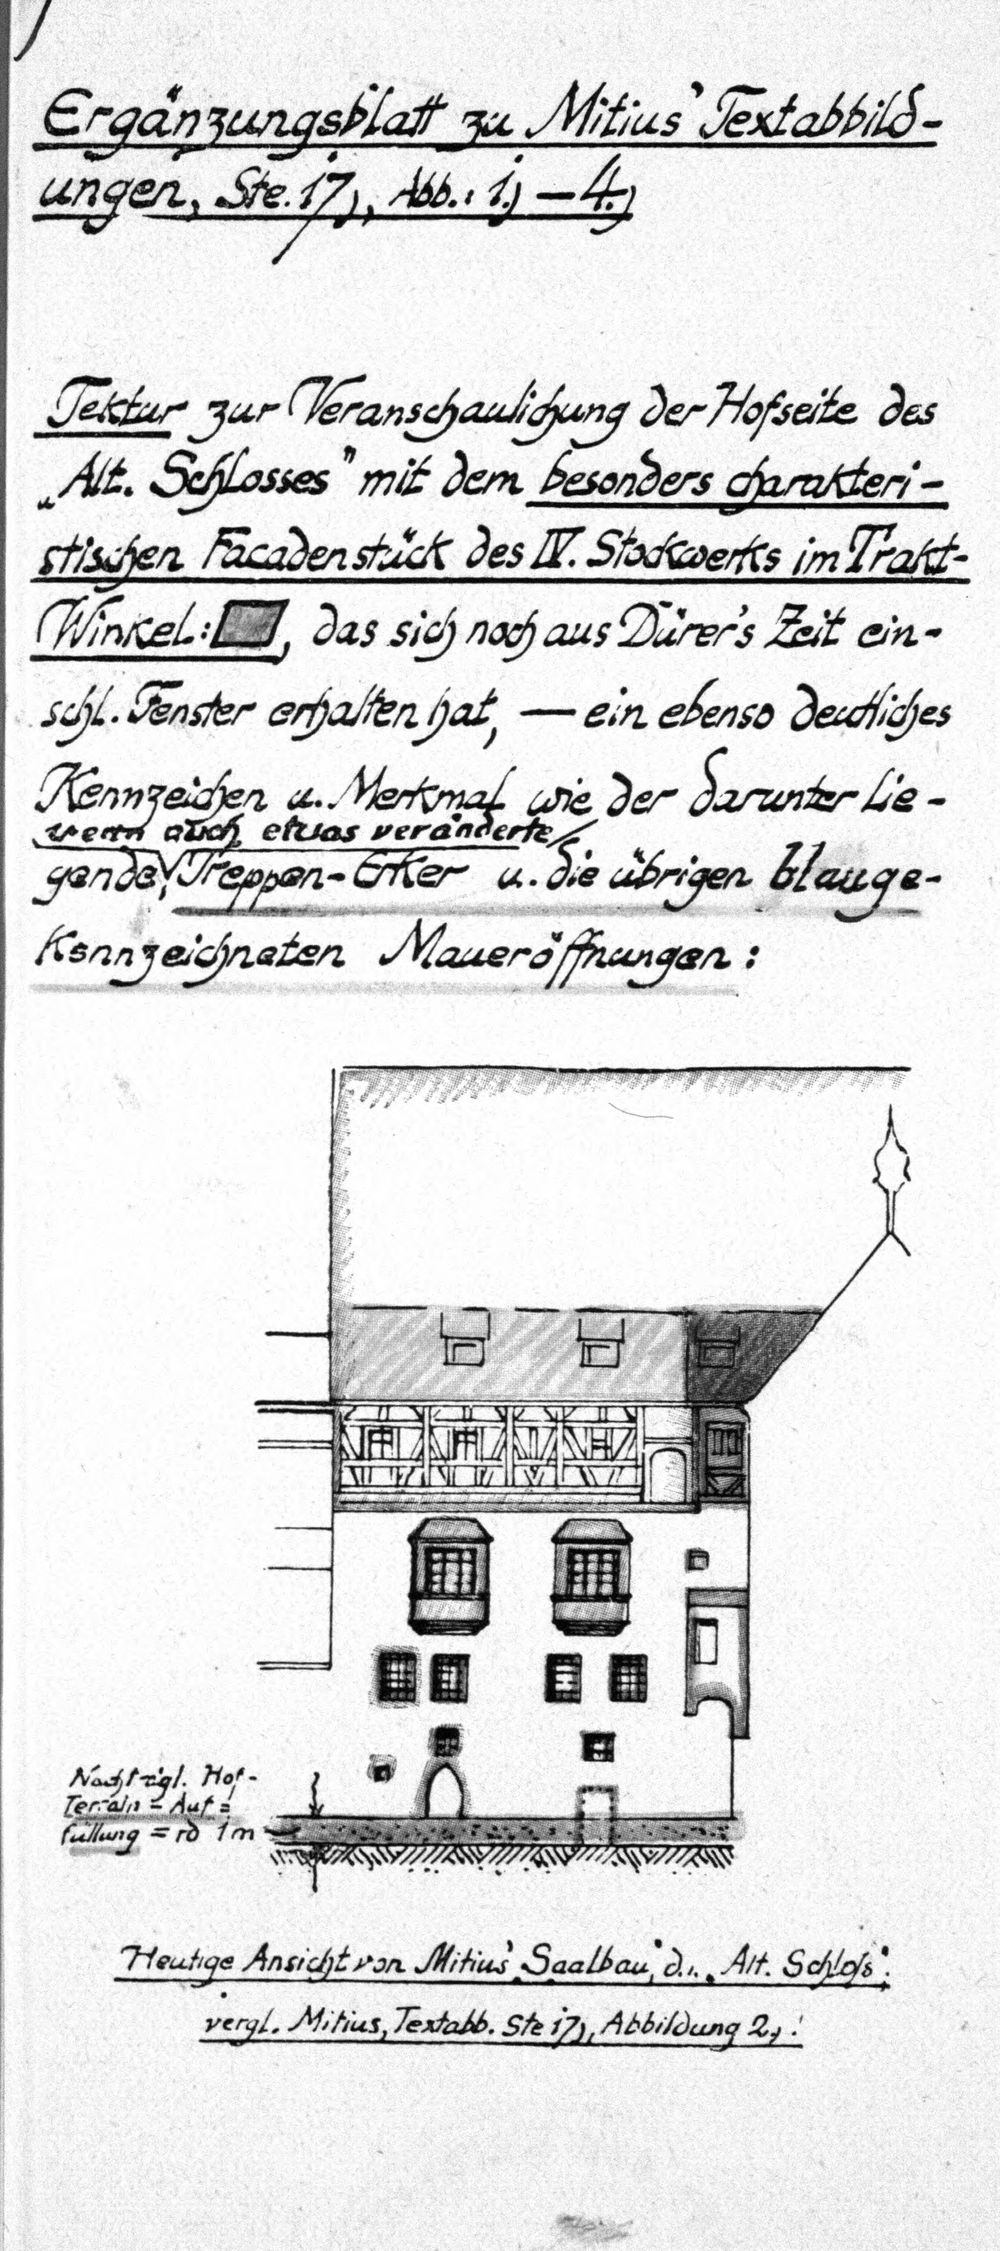 Ergänzungsblatt zu Mitius' Textabbild-
ungen, Ste. 17), Abb.: 1.) — 4.)
Tektur zur Veranschaulichung der Hofseite des
„Alt. Schlosses" mit dem besonders charakteri-
stischen Facadenstück des IV. Stockwerks im Trakt-
Winkel: , das sich noch aus Dürer's Zeit ein-
schl. Fenster erhalten hat, — ein ebenso deutliches
Kennzeichen u. Merkmal wie der darunter lie-
wenn auch etwas veränderte
gende, Treppen-Erker u. die übrigen blauge-
kennzeichneten Maueröffnungen:
Nachträgl. Hof-
Terrain-Auf=
füllung = rd 1m
Heutige Ansicht von Mitius' „Saalbau", d.i. „Alt. Schloß".
vergl. Mitius, Textabb. Ste 17), Abbildung 2.) !